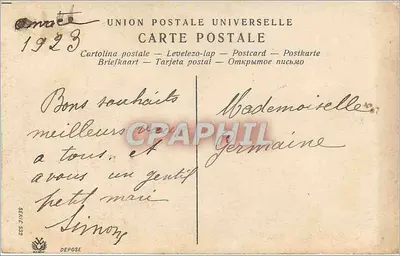 année
1923
UNION POSTALE UNIVERSELLE
CARTE POSTALE
Cartolina postale — Levelezo-lap — Postcard — Postkarte
Briefkaart — Tarjeta postal — Открытое письмо
Bons souhaits
meilleurs vœux
a tous et
a vous un gentil
petit mari
Simone
Mademoiselle
Germaine
CRAPHIL
SERIE 532
DEPOSE